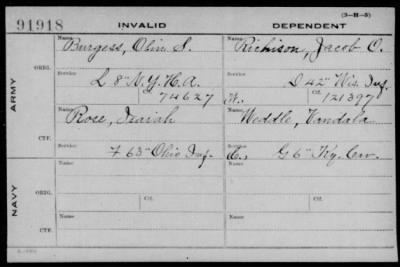 (3-H-5)
91918 INVALID DEPENDENT
Name Burgess, Olin S. Name Richison, Jacob O.
ORIG. Service L 8" N.Y.H.A. Service D 42" Wis. Inf.
74627 W. Ctf. 121397
ARMY
Name Rose, Isaiah Name Weddle, Vandala
CTF. Service F 63" Ohio Inf. Service G 6" Ky. Cav.
NAVY
Name Name
ORIG. Service Ctf. Service Ctf.
Name Name
CTF. Service Service